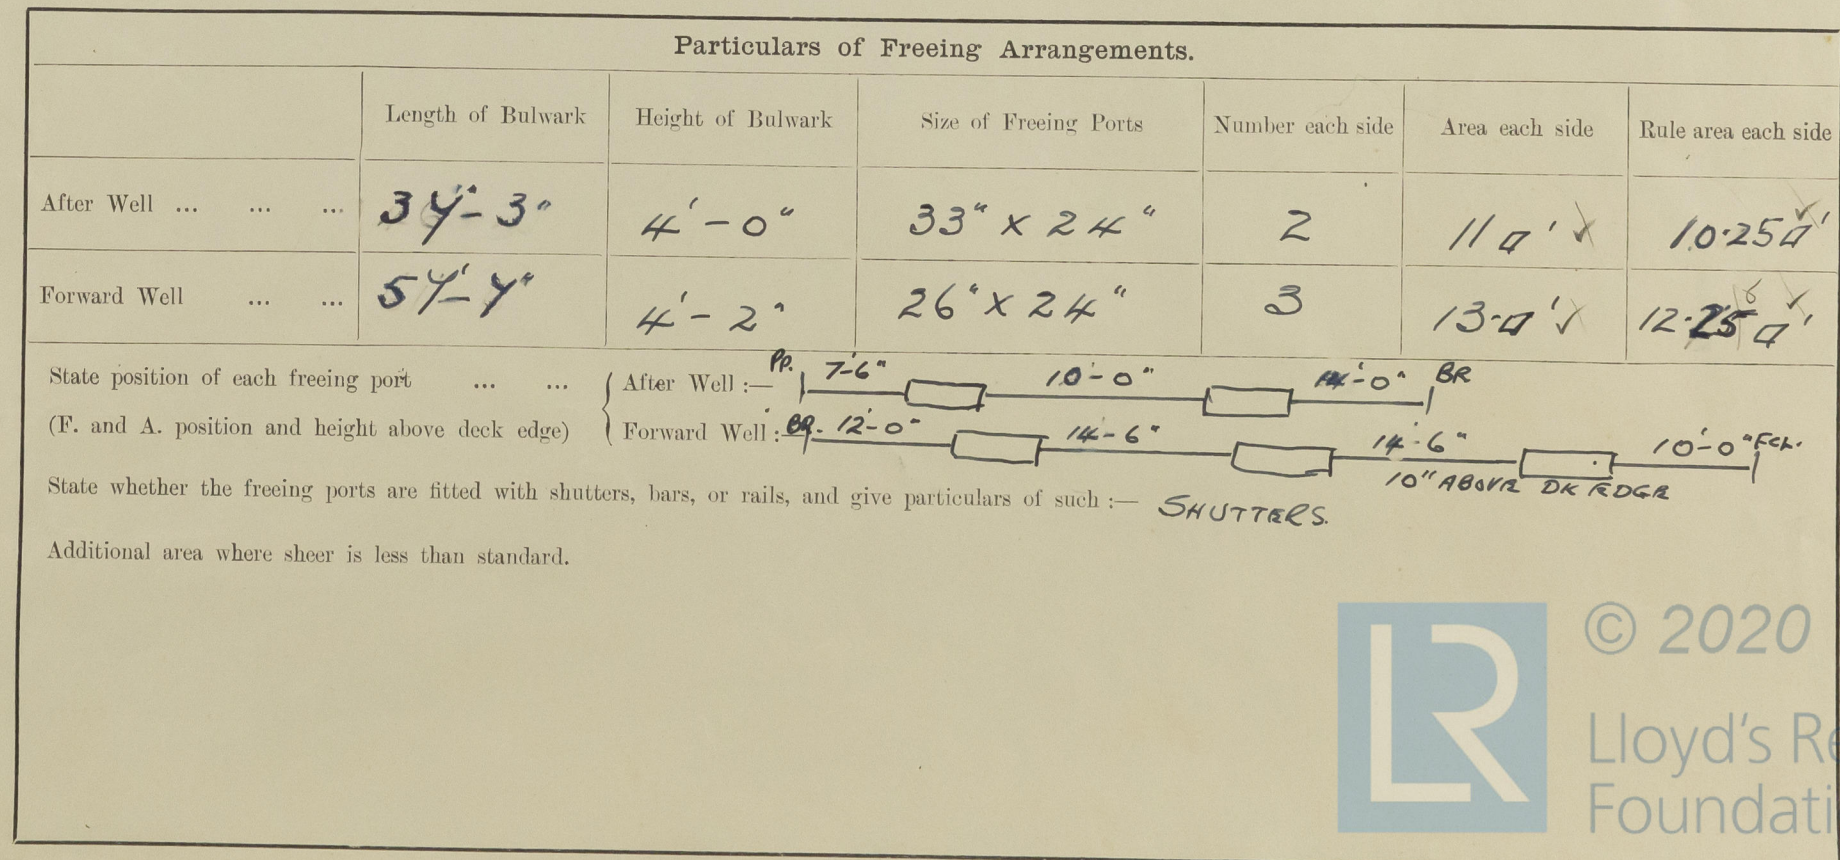 Particulars of Freeing Arrangements.
Length of Bulwark Height of Bulwark Size of Freeing Ports Number each side Area each side Rule area each side
After Well ... ... ... 37'-3" 4'-0" 33" x 24" 2 11□' ✓ 10.25□' ✓
Forward Well ... ... 57'-7" 4'-2" 26" x 24" 3 13.□' ✓ 12.25□' ✓
6
State position of each freeing port ... ... After Well :— PP. 7'-6" 10'-0" 14'-0" BR
(F. and A. position and height above deck edge) Forward Well :— BR. 12'-0" 14'-6" 14'-6" 10'-0" FCL.
10" ABOVE DK EDGE
State whether the freeing ports are fitted with shutters, bars, or rails, and give particulars of such :— SHUTTERS.
Additional area where sheer is less than standard.
LR
© 2020
Lloyd's Re
Foundati